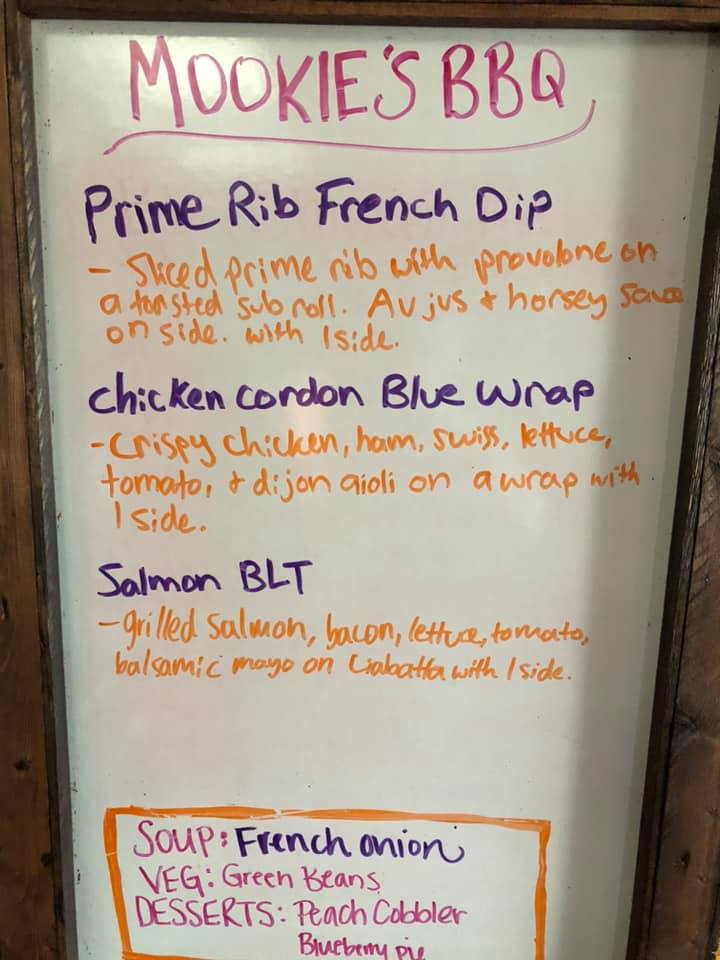 MOOKIE'S BBQ
Prime Rib French Dip
- Sliced prime rib with provolone on
a toasted sub roll. Au jus & horsey sauce
on side. with 1 side.
Chicken cordon Blue Wrap
- Crispy chicken, ham, swiss, lettuce,
tomato, & dijon aioli on a wrap with
1 side.
Salmon BLT
- grilled salmon, bacon, lettuce, tomato,
balsamic mayo on Ciabatta with 1 side.
SOUP: French onion
VEG: Green Beans
DESSERTS: Peach Cobbler
Blueberry pie